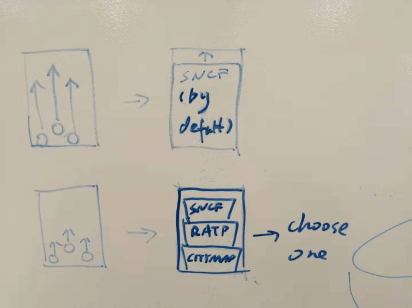 SNCF
(by
default)
SNCF
RATP
CITYMAP
choose
one